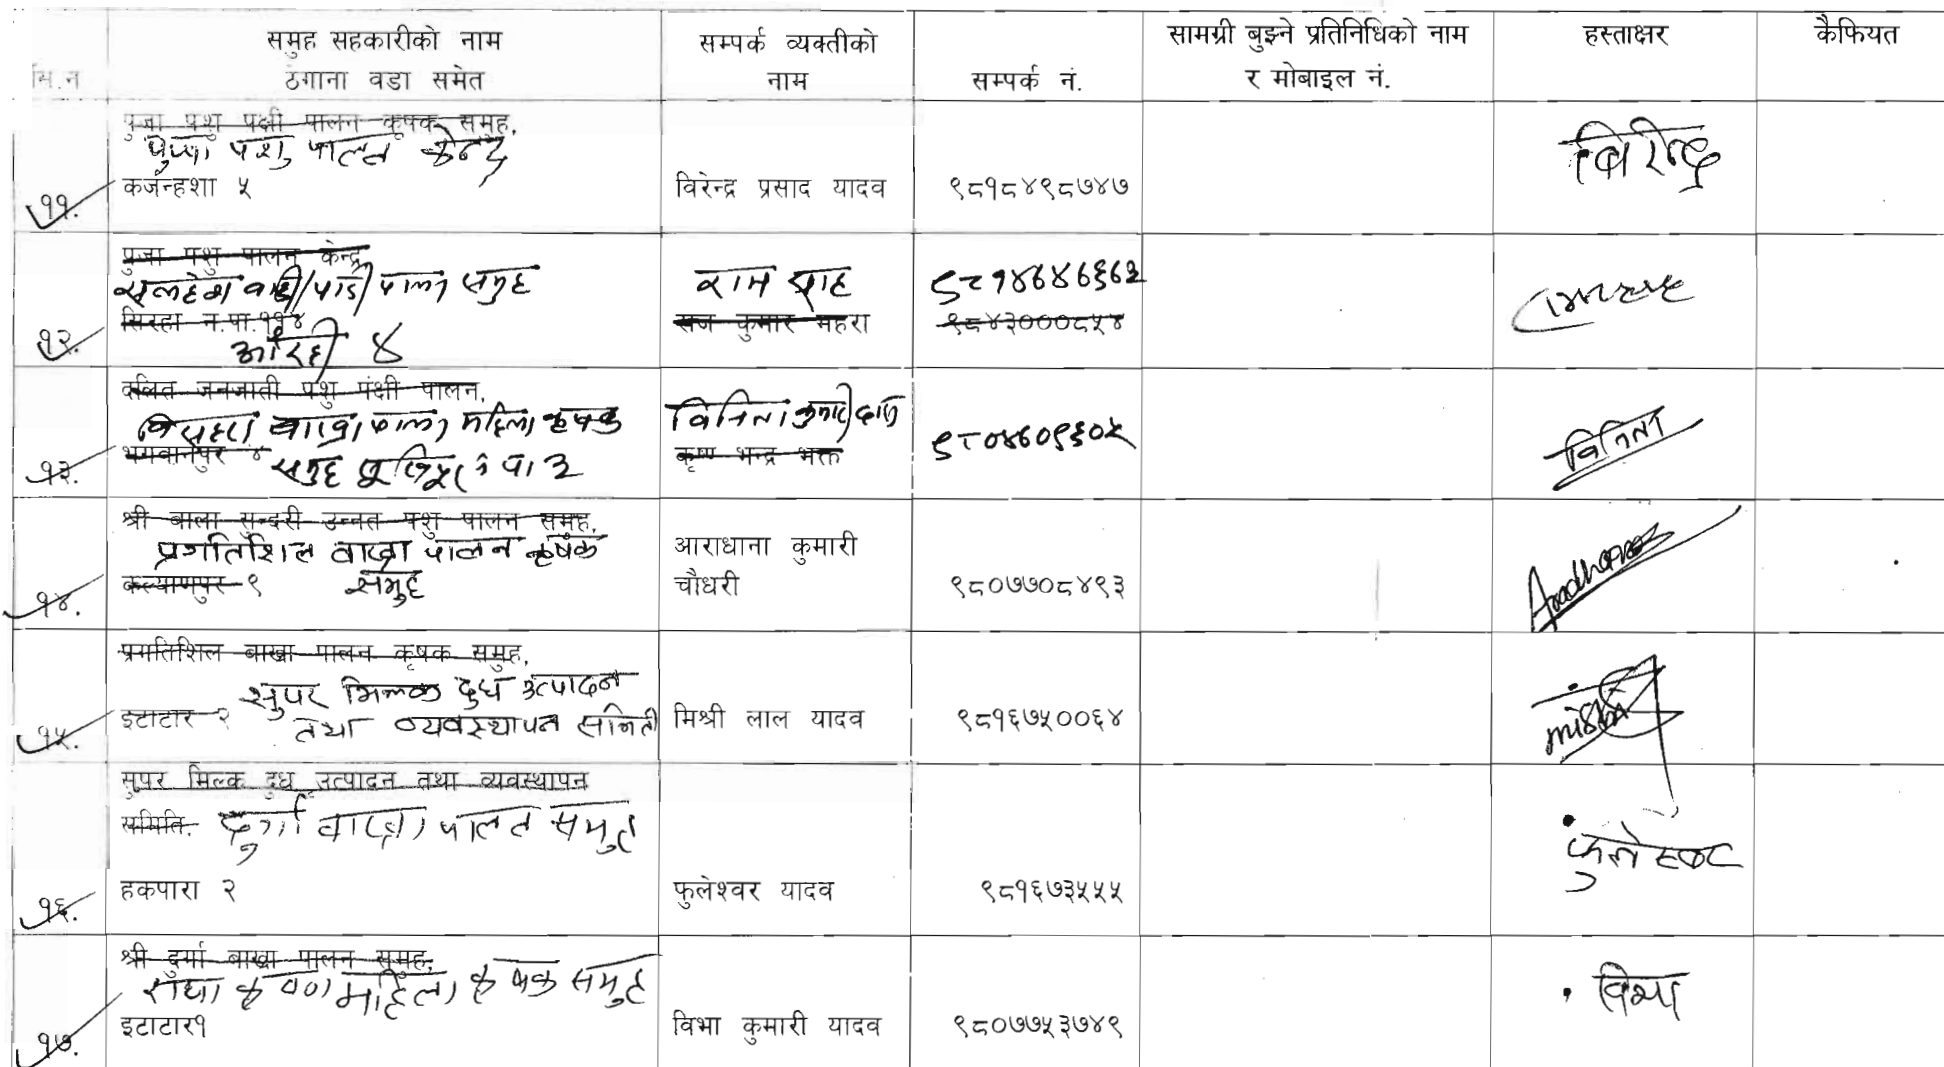 समुह सहकारीको नाम
ठेगाना वडा समेत
सम्पर्क व्यक्तीको
नाम
सम्पर्क नं.
सामग्री बुझ्ने प्रतिनिधिको नाम
र मोबाइल नं.
हस्ताक्षर
कैफियत
सि.न
११.
पुजा पशु पक्षी पालन कृषक समुह,
पुजा पशु पालन केन्द्र
कर्जन्हशा ५
विरेन्द्र प्रसाद यादव
९८१८४९८७४७
विरेन्द्र
१२.
पुजा पशु पालन केन्द्र,
सलहेश पालन समुह
सिरहा न.पा.
औरही ४
राम साह
राज कुमार महरा
९८४३०००८५४
१३.
दलित जनजाती पशु पंक्षी पालन,
विसहरा बाख्रा पालन महिला कृषक
भगवानपुर ४
समुह
विनिता कुमारी दास
कृष्ण भन्द्र भक्त
विनिता
१४.
श्री बाला सुन्दरी उन्नत पशु पालन समुह,
प्रगतिशिल बाख्रा पालन कृषक
कल्याणपुर ९
समुह
आराधाना कुमारी
चौधरी
९८०७७०८४९३
Aradhana
१५.
प्रगतिशिल बाखा पालन कृषक समुह,
सुपर मिल्क दुध उत्पादन
इटाटार २
तथा व्यवस्थापन समिती
मिश्री लाल यादव
९८१६७५००६४
१६.
सुपर मिल्क दुध उत्पादन तथा व्यवस्थापन
समिति,
दुर्गा बाख्रा पालन समुह
हकपारा २
फुलेश्वर यादव
९८१६७३५५५
१७.
श्री दुर्गा बाखा पालन समुह,
राधा कृष्ण महिला कृषक समुह
इटाटार१
विभा कुमारी यादव
९८०७७५३७४९
विभा